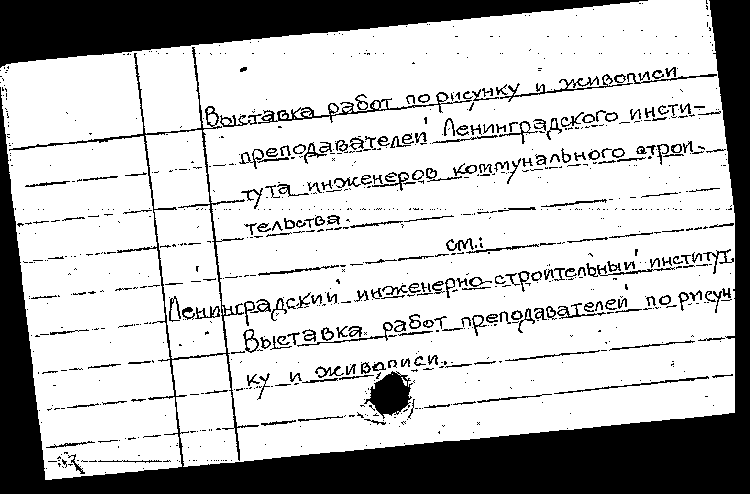 Выставка работ по рисунку и живописи
преподавателей Ленинградского инсти-
тута инженеров коммунального строи-
тельства.
см.:
Ленинградский инженерно-строительный институт.
Выставка работ преподавателей по рисун-
ку и живописи.